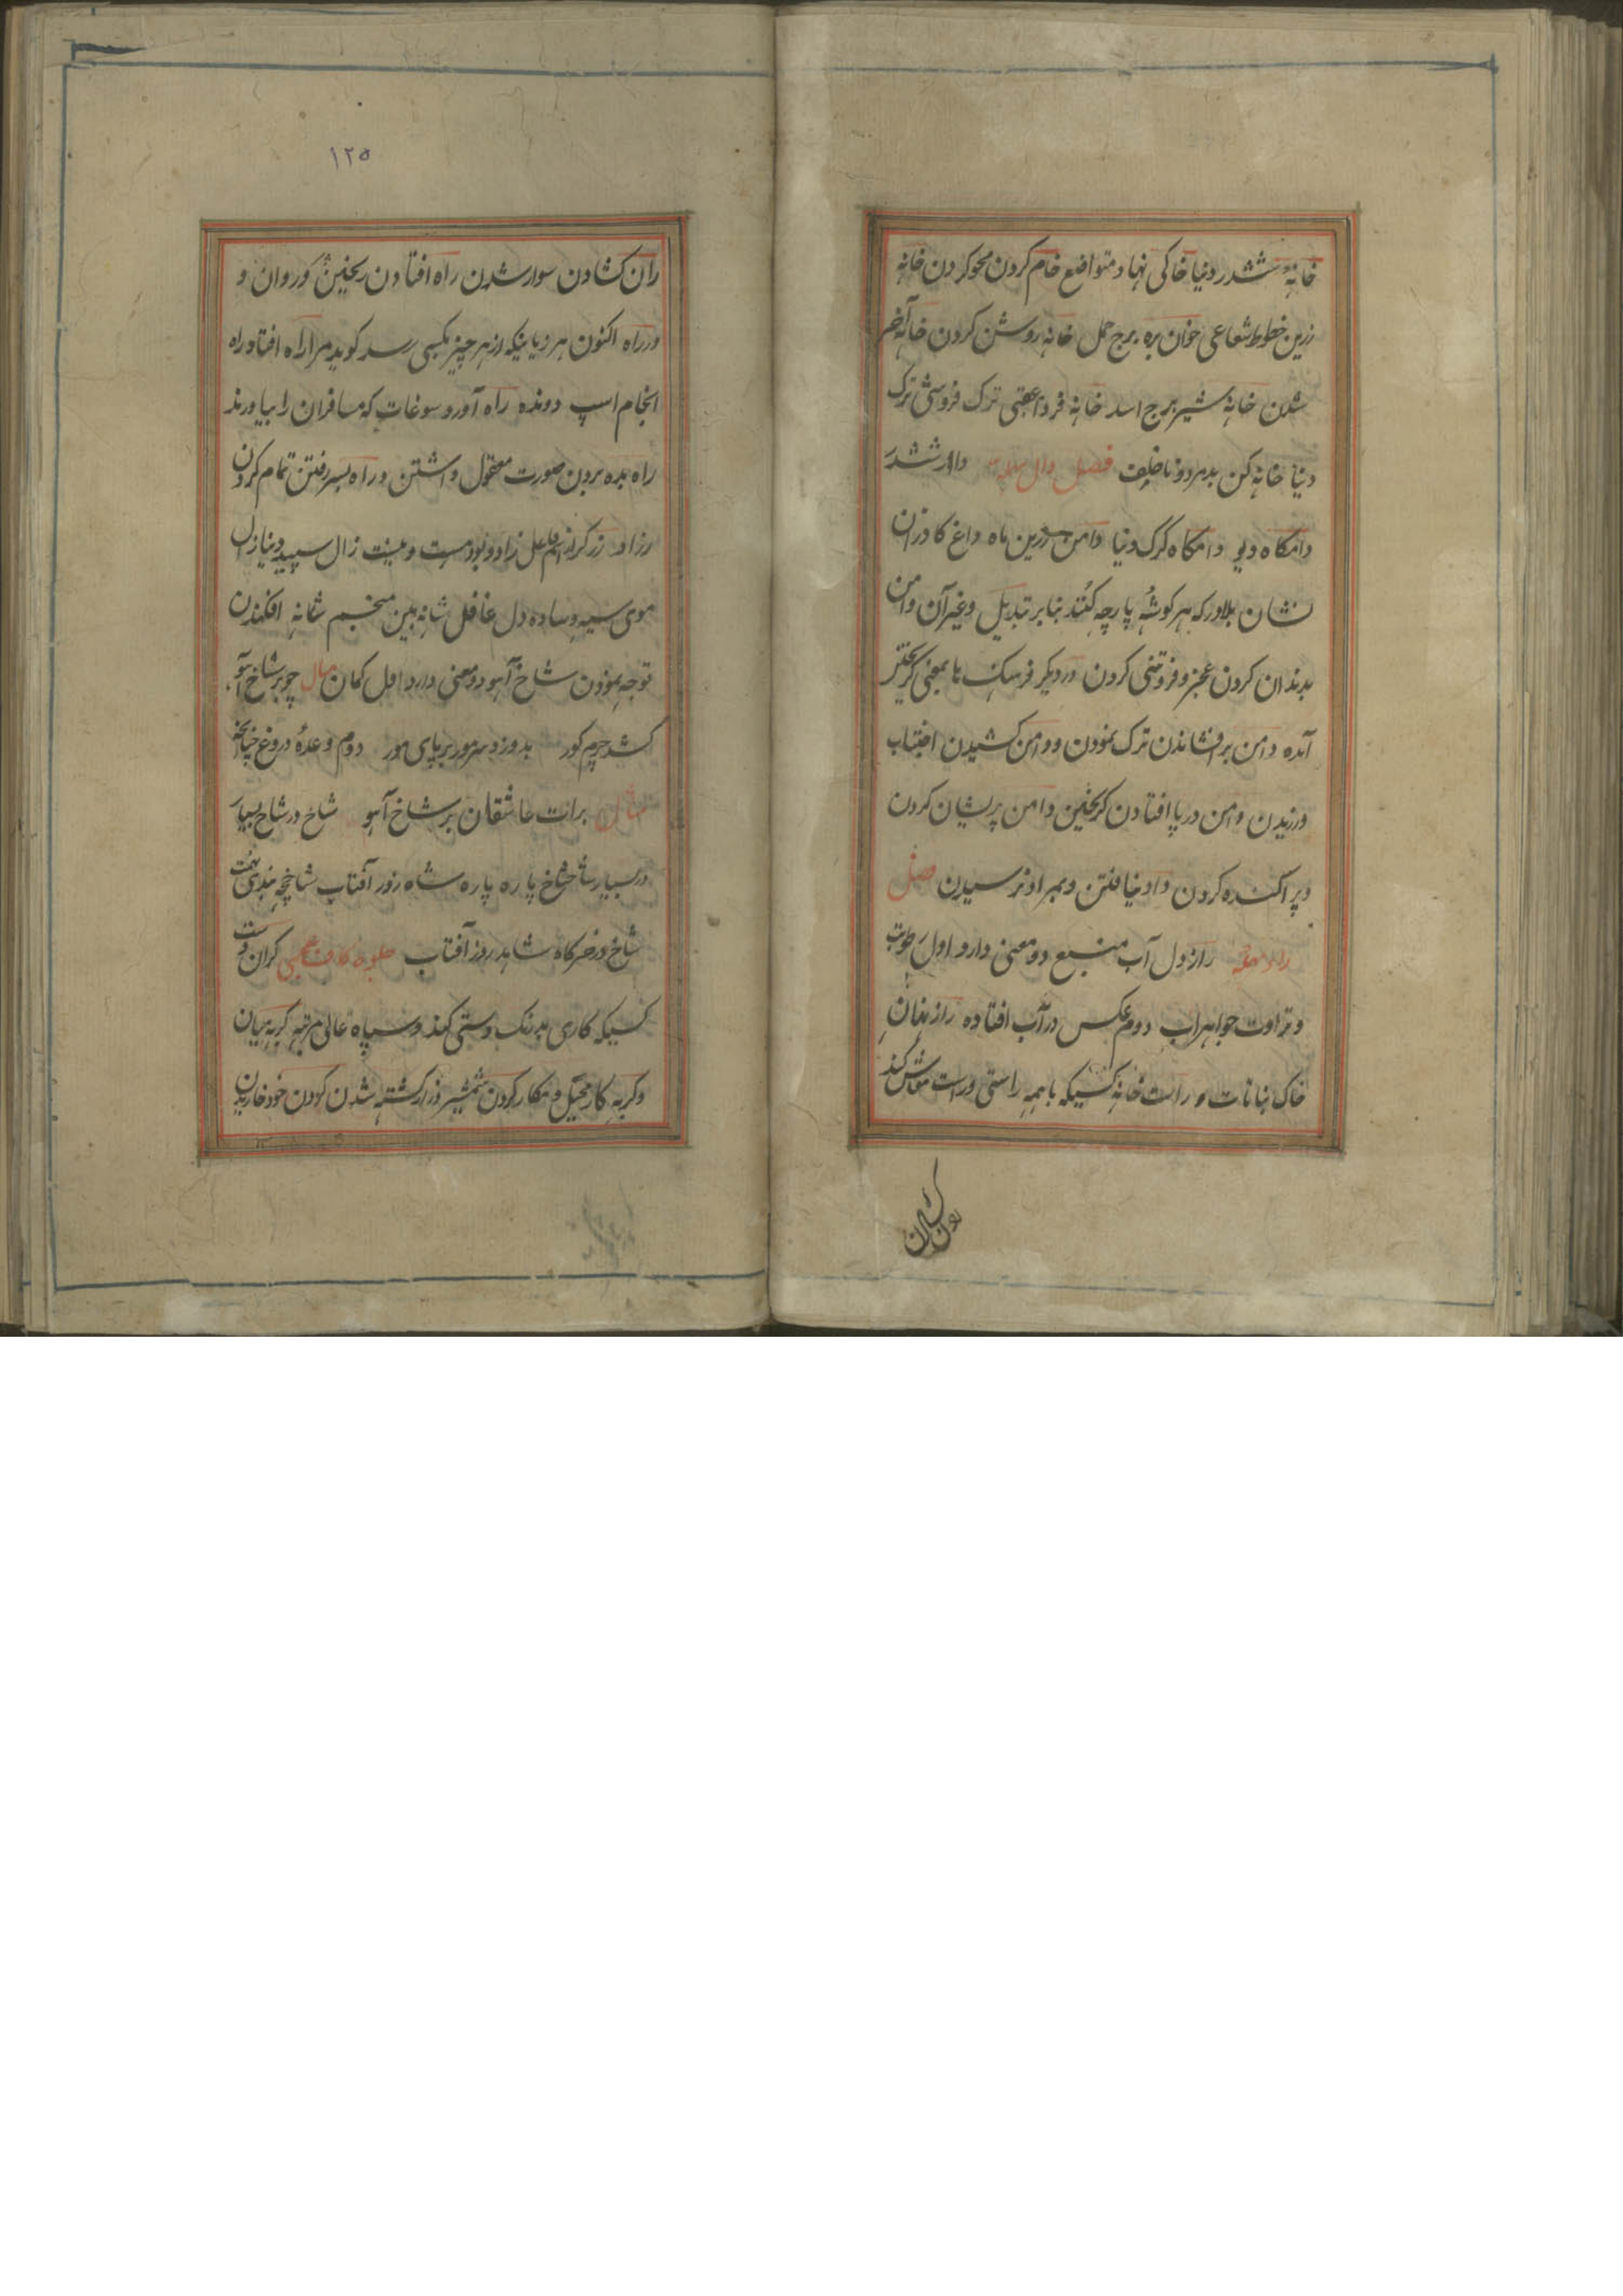 خانهٔ ششدر دنیا خاکی نهاد متواضع خام کردن محو کردن خانه
زرین خطوط شعاعی خوان بره برج حمل خانه روشن کردن خانه آخر
شدن خانهٔ شیر برج اسد خانه فردا عقبی ترک فروشی ترک
دنیا خانه کن بدمرد و ناخلف فصل دال مهلا دار ششدر
دامکاه دیو دامکاه کرک دنیا دامن زرین ماه داغ کاذران
نشان بلادر که بهر کوشهٔ پارچه کنند بنابر تبدیل و غیر آن دامن
بدندان کردن عجز و فروتنی کردن در دیکر فرهنک ها بمعنی کریختن
آمده دامن برافشاندن ترک نمودن و دامن کشیدن اجتناب
ورزیدن دامن در پا افتادن کریختن دامن پریشان کردن
و پراکنده کردن داد نیافتن و بمراد نرسیدن فصل
راز دل آب منبع دو معنی دارد اول رطوبت
و تراوت جواهر آب دوم عکس در آب افتاده راز نهان
خاک نباتات راست خانه کسیکه با همه راستی و راست معاش کند
۱۲۵
ران کشادن سوار شدن راه افتادن ریختن کوروان و
در راه اکنون هر زیانیکه از هر چیز بکسی رسد کوید مرا راه افتاد راه
انجام اسپ دونده راه آورد سوغات که مسافران را بیاورند
راه بده بردن صورت معقول داشتن و راه بسر رفتن تمام کردن
زال سپید دنیا زال
موی سیه و ساده دل غافل شانه بین منجم شانه افکندن
توجه نمودن شاخ آهو دو معنی دارد اول کمان مثال چو بر شاخ آهو
کشد چرم کور بدوزد سر مور بر پای مور دوم وعدهٔ دروغ چنانچه
مثال برات عاشقان بر شاخ آهو شاخ در شاخ بسیار
در بسیار شاخ شاخ پاره پاره شاه زور آفتاب شاخچه بندی تهمت
شاخ در خرکاه شاهد روز آفتاب جلوه کاف عجمی کران دست
کسیکه کاری بدرنک و سستی کند و سپاه عالی مرتبه کربه میان
و کربه کار محیل و مکار کردن شمشیر دراز کشته شدن کردن خود خاریدن